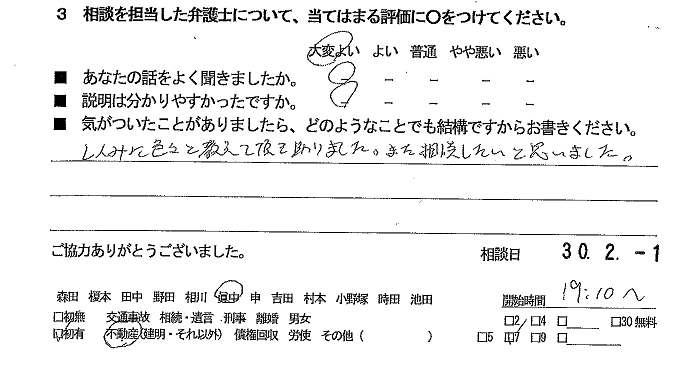 3 相談を担当した弁護士について、当てはまる評価に○をつけてください。
大変よい よい 普通 やや悪い 悪い
■ あなたの話をよく聞きましたか。 － － － － －
■ 説明は分かりやすかったですか。 － － － － －
■ 気がついたことがありましたら、どのようなことでも結構ですからお書きください。
しんみに色々と教えて頂き助りました。また相談したいと思いました。
ご協力ありがとうございました。 相談日 30. 2. -1
森田 榎本 田中 野田 相川 田中 申 吉田 村本 小野塚 時田 池田 開始時間 19:10～
□初無 交通事故 相続・遺言 刑事 離婚 男女 □2/□4 □ □30無料
□初有 不動産(建明・それ以外) 債権回収 労使 その他( ) □5 □7 □9 □